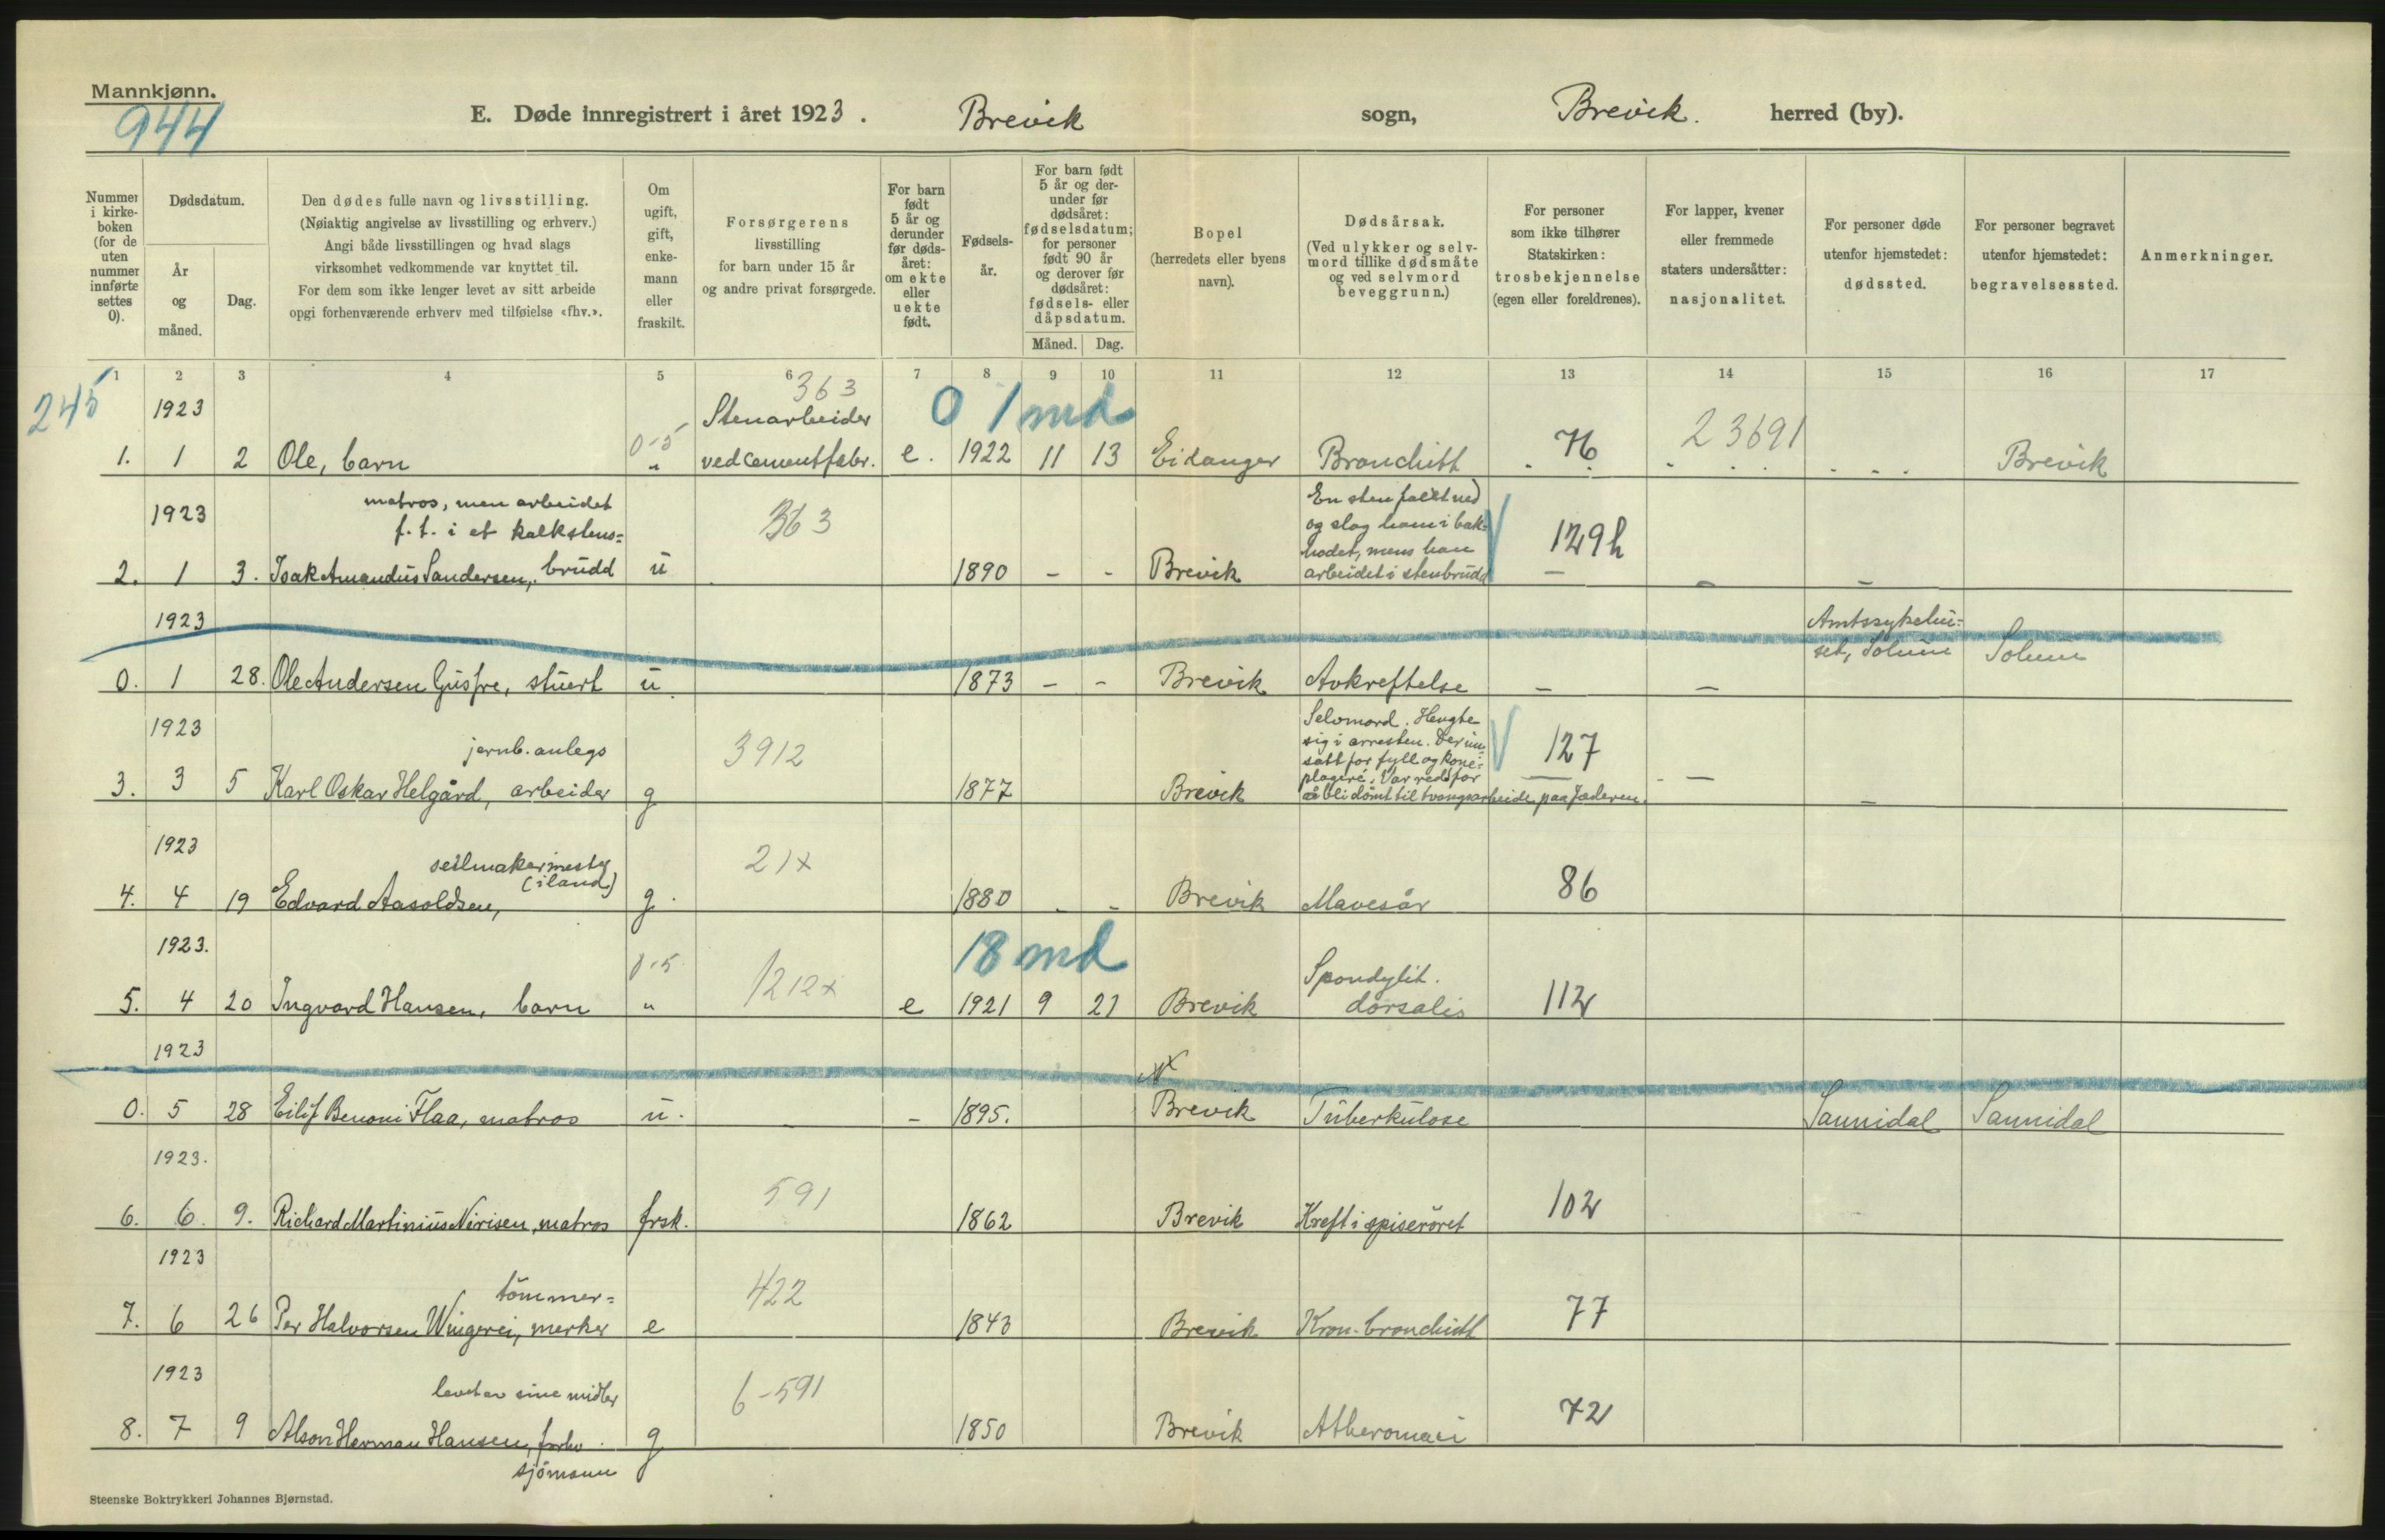 Mannkjønn.
944
E. Døde innregistrert i året 1923. Brevik sogn, Brevik. herred (by).
Nummer i kirkeboken (for de uten nummer innførte settes 0).
Dødsdatum.
År og måned.
Dag.
Den dødes fulle navn og livsstilling.
(Nøiaktig angivelse av livsstilling og erhverv.)
Angi både livsstillingen og hvad slags
virksomhet vedkommende var knyttet til.
For dem som ikke lenger levet av sitt arbeide
opgi forhenværende erhverv med tilføielse «fhv.».
Om ugift, gift, enkemann eller fraskilt.
Forsørgerens
livsstilling
for barn under 15 år
og andre privat forsørgede.
For barn født 5 år og derunder før dødsåret: om ekte eller uekte født.
Fødselsår.
For barn født 5 år og derunder før dødsåret: fødselsdatum; for personer født 90 år og derover før dødsåret: fødsels- eller dåpsdatum.
Måned. Dag.
Bopel
(herredets eller byens
navn).
Dødsårsak.
(Ved ulykker og selvmord tillike dødsmåte
og ved selvmord
beveggrunn.)
For personer
som ikke tilhører
Statskirken:
trosbekjennelse
(egen eller foreldrenes).
For lapper, kvener
eller fremmede
staters undersåtter:
nasjonalitet.
For personer døde
utenfor hjemstedet:
dødssted.
For personer begravet
utenfor hjemstedet:
begravelsessted.
Anmerkninger.
1 2 3 4 5 6 7 8 9 10 11 12 13 14 15 16 17
245 1923 363 Stenarbeider 0 1 md
1. 1 2 Ole, barn 0-5 " ved cementfabr. e. 1922 11 13 Eidanger Bronchitt 76 23691 Brevik
1923 matros, men arbeidet
f.t. i et kalkstens=
363
En sten falt ned
og slog ham i bak=
hodet, mens han
2. 1 3. Isak Amandus Sandersen, brudd u 1890 - - Brevik arbeidet i stenbrudd 129h - - -
1923 Amtssykehu=
0. 1 28. Ole Andersen Gusfre, stuert u. 1873 - - Brevik Avkreftelse - - set, Solum Solum
1923 jernb. anlegs
3912
Selvmord. Hengte
sig i arresten. Der inn
satt for fyll og kone=
plageri. Var redd for
3. 3 5 Karl Oskar Helgård, arbeider g 1877 Brevik aa bli dömt til tvangsarbeide paa Jæderen. 127 - -
1923 seilmakermester
(iland)
4. 4 19 Edvard Aasoldsen, g. 21x 1880 - - Brevik Mavesår 86
1923. 18 md
5. 4 20 Ingvard Hansen, barn 0-5 " 1212x e 1921 9 21 Brevik Spondylit.
dorsalis 112
1923
0. 5 28 Eilif Benoni Flaa, matros u. - - 1895. Brevik Tuberkulose Sannidal Sannidal
1923.
6. 6. 9. Richard Martinius Nirisen, matros frsk. 591 1862 Brevik Kreft i spiseröret 102
1923 tömmer=
7. 6 26 Per Halvorsen Wingerei, merker e 422 1843 Brevik Kron. bronchitt 77
1923 levet av sine midler
8. 7 9 Alson Herman Hansen, forhv. g 6-591 1850 Brevik Atheromasi 72
sjömann
Steenske Boktrykkeri Johannes Bjørnstad.